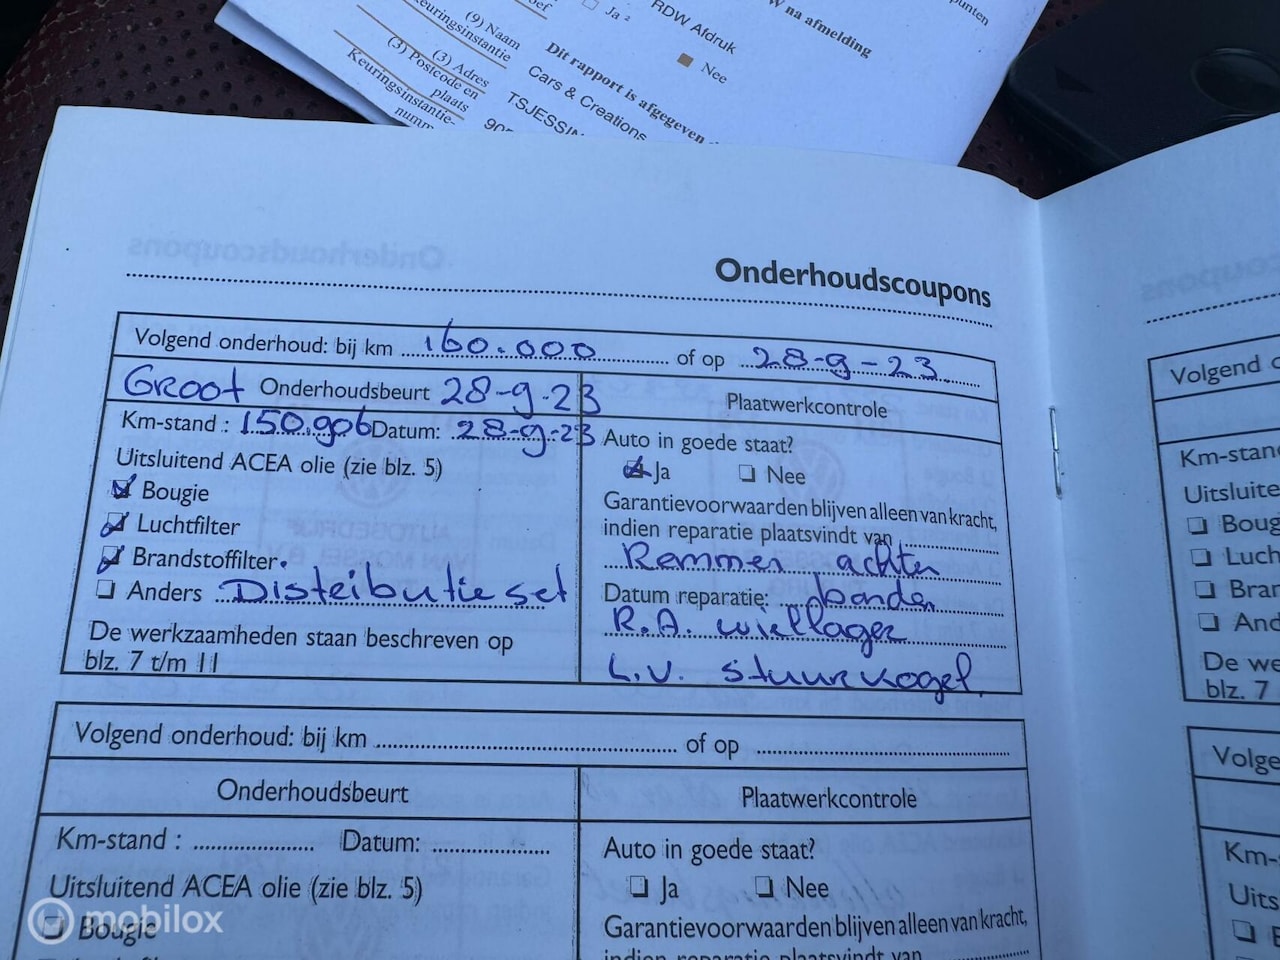 oef
Ja ²
RDW Afdruk
Nee
W na afmelding
punten
(9) Naam
euringsinstantie
Dit rapport is afgegeven
(3) Adres
Cars & Creations
(3) Postcode en
plaats
TSJESSIN
Keuringsinstantie-
numm
Onderhoudscoupons
Volgend onderhoud: bij km 160.000 of op 28-9-23
Groot Onderhoudsbeurt 28-9-23
Plaatwerkcontrole
Km-stand : 150.906 Datum: 28-9-23
Auto in goede staat?
Uitsluitend ACEA olie (zie blz. 5)
Ja Nee
Bougie
Garantievoorwaarden blijven alleen van kracht,
Luchtfilter
indien reparatie plaatsvindt van
Brandstoffilter.
Remmen achter
Anders Distributie set
Datum reparatie: banden
R.A. wiellager
De werkzaamheden staan beschreven op
blz. 7 t/m 11
L.V. stuurkogel.
Volgend onderhoud: bij km of op
Onderhoudsbeurt
Plaatwerkcontrole
Km-stand : Datum:
Auto in goede staat?
Uitsluitend ACEA olie (zie blz. 5)
Ja Nee
Bougie
Garantievoorwaarden blijven alleen van kracht,
indien reparatie plaatsvindt van
Volgend o
Km-stan
Uitsluite
Boug
Luch
Bran
And
De we
blz. 7
Volge
Km-
Uits
mobilox